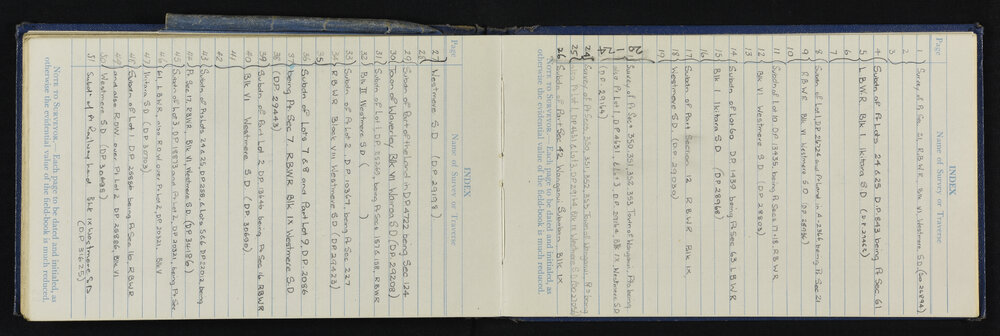 INDEX
Page Name of Survey or Traverse
1 Survey of Sec. 21, R.B.W.R., Blk VI Westmere S.D.
2
3
4 Subdn of Pt Lots 24 & 25 D.P. 843 being Pt Sec 61
5 R.B.W.R Blk I Ikitara S.D
6
7
8 Subdn of Lot 1, D.P. 26724 and Pt Land in A. 2366 being Pt Sec 21
9 R.B.W.R. Blk VI Westmere S.D
10
11 Subdn of Lot 10 D.P. 13435, being Pt Secs 17-18, R.B.W.R
12 Blk VI Westmere S.D (D.P. 28803)
13
14 Subdn of Lot 60 D.P. 1439 being Pt Sec 63 R.B.W.R
15 Blk I Ikitara S.D (D.P. 28968)
16
17 Subdn of Part Section 12 R.B.W.R Blk IX,
18 Westmere S.D. (D.P. 29030)
19
24 Survey of Pt Secs. 350, 351, 352, 353, Town of Wanganui, Pts being
26 Subdn of Part Sec 42 Wanganui Suburban Blk IX
NOTE TO SURVEYOR.—Each page to be dated and initialed, as
otherwise the evidential value of the field-book is much reduced.
INDEX
Page Name of Survey or Traverse
27 Westmere S.D (D.P. 29198)
28
29 Subdn of Part of the land in D.P. 4722 being Sec 124
30 Town of Waverley Blk VII Wairoa S.D. (D.P. 29208)
31 Subdn of Lot 1, D.P. 25262, being Pt Secs 157 & 158, R.B.W.R
32 Blk III Westmere S.D ( )
33 Subdn of Pt Lot 2 D.P. 10367, being Pt Sec 227
34 R.B.W.R Block VIII Westmere S.D (D.P. 29423)
35
36
37 Subdn of Lots 7 & 8 and Part Lot 9, D.P. 2086
being Pt Sec 7 R.B.W.R Blk IX Westmere S.D
38 (D.P. 29443)
39 Subdn of Part Lot 2 D.P. 13640 being Pt Sec 16 R.B.W.R
40 Blk VI Westmere S.D (D.P. 30690)
41
42
43 Subdn of Pt Lots 24 & 25, D.P. 288, & Lots 5 & 6 D.P. 22012, being
44 Pt Sec 17, R.B.W.R, Blk VI, Westmere S.D. (D.P. 34186)
45 Subdn of Lot 3 D.P. 18873 and Pt Lot 2, D.P. 20321, being Pt Sec
46 61, R.B.W.R, also R.O.W over Pt Lot 2, D.P. 20321, Blk V
47 Ikitara S.D (D.P. 30703)
48 Subdn of Lot 1, D.P. 20886 being Pt Sec 16, R.B.W.R
49 and also R.O.W. over Pt Lot 2 D.P. 20886, Blk VI,
50 Westmere S.D (D.P. 30698)
51 Subdn of Pt Railway Land Blk IX Westmere S.D
(D.P. 31625)
NOTE TO SURVEYOR.—Each page to be dated and initialed, as
otherwise the evidential value of the field-book is much reduced.